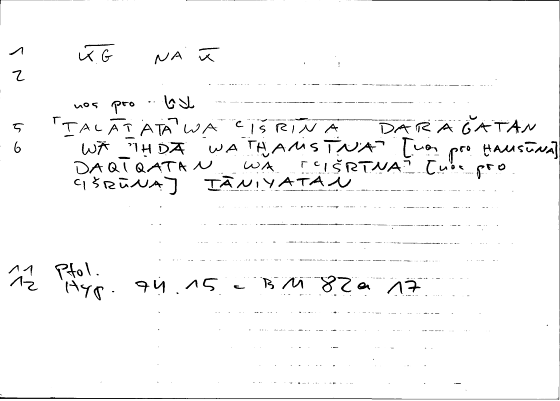 1 K̅G̅ NA K̅
2
nos pro
5 ⌜ṮALĀṮATA⌝ WA ʿIŠRĪNA DARAĞATAN
6 WA ⌜IḤDĀ WA ⌜ḪAMSĪNA⌝ [nos pro ḪAMSŪNA]
DAQĪQATAN WA ⌜ʿIŠRĪNA⌝ [nos pro
ʿIŠRŪNA] ṮĀNIYATAN
11 Ptol.
12 Hyp. 94.15 = BM 82a 17